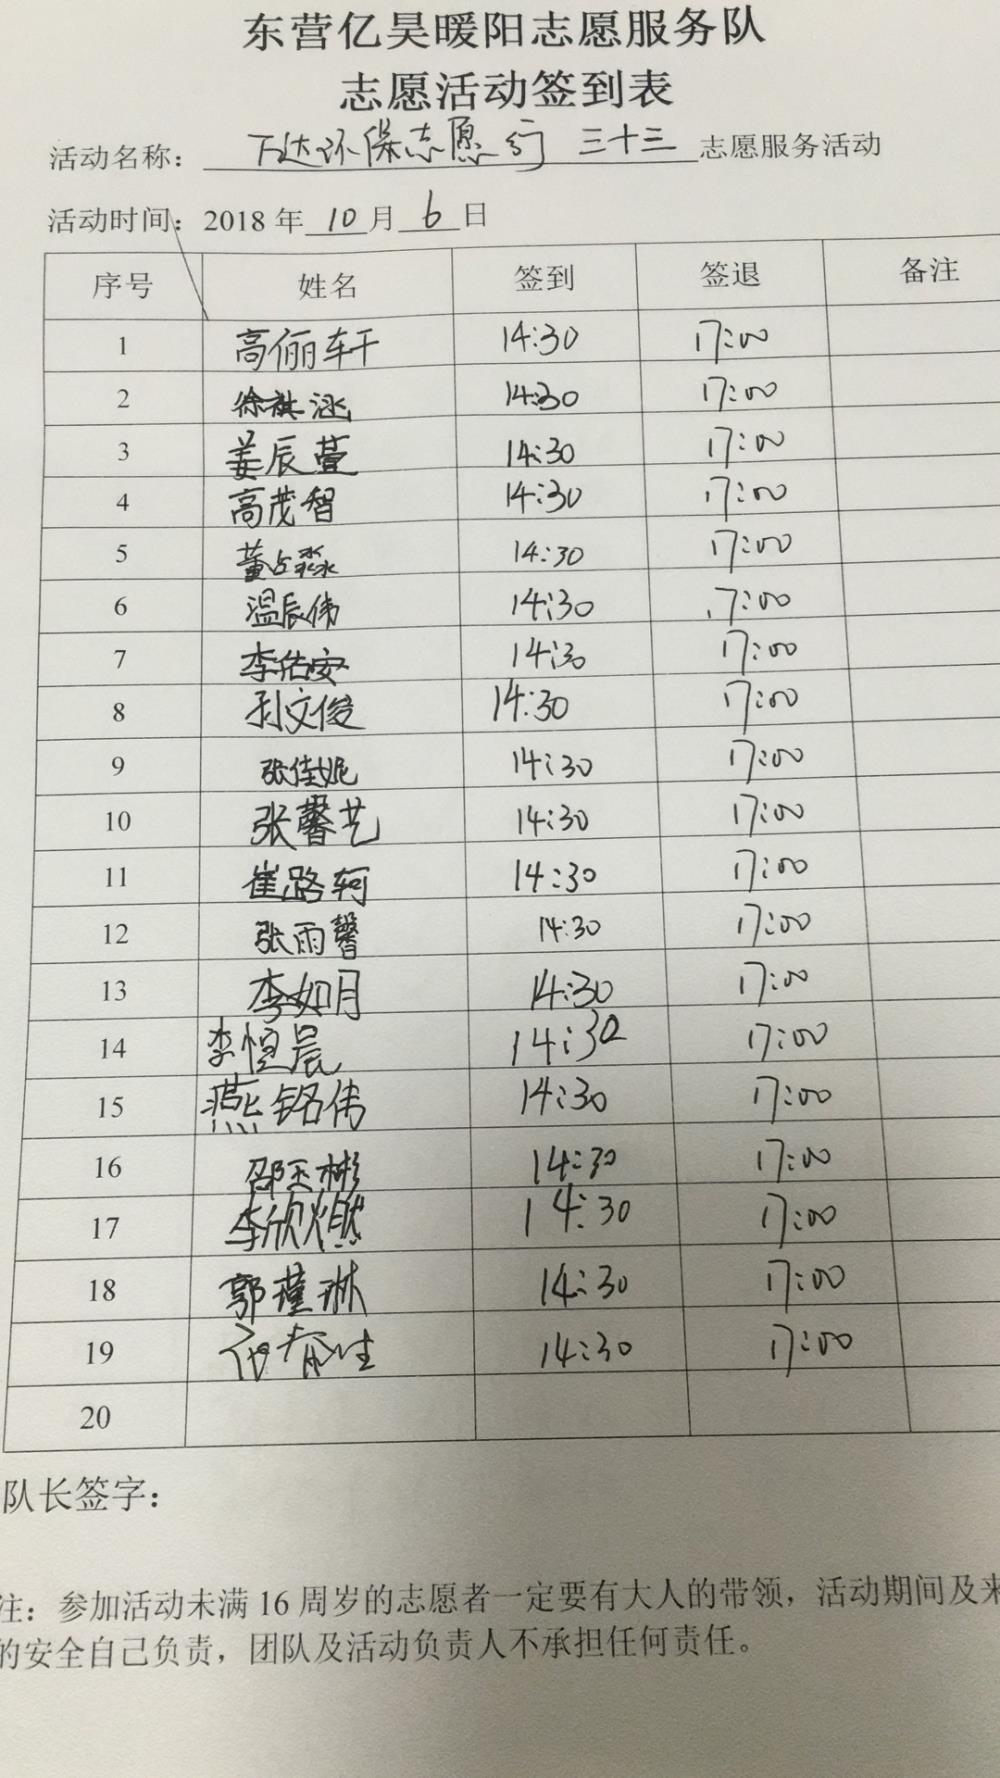 东营亿昊暖阳志愿服务队
志愿活动签到表
活动名称：万达环保志愿行 三十三志愿服务活动
活动时间：2018年10月6日
序号 姓名 签到 签退 备注
1 高俪轩 14:30 17:00
2 徐祺涵 14:30 17:00
3 姜辰萱 14:30 17:00
4 高茂智 14:30 17:00
5 董占淼 14:30 17:00
6 温辰伟 14:30 17:00
7 李佑安 14:30 17:00
8 孙文俊 14:30 17:00
9 张佳妮 14:30 17:00
10 张馨艺 14:30 17:00
11 崔路轲 14:30 17:00
12 张雨馨 14:30 17:00
13 李如月 14:30 17:00
14 李恒晨 14:30 17:00
15 燕铭伟 14:30 17:00
16 邵玉彬 14:30 17:00
17 李欣燃 14:30 17:00
18 郭瑾琳 14:30 17:00
19 14:30 17:00
20
队长签字：
注：参加活动未满16周岁的志愿者一定要有大人的带领，活动期间及来
的安全自己负责，团队及活动负责人不承担任何责任。